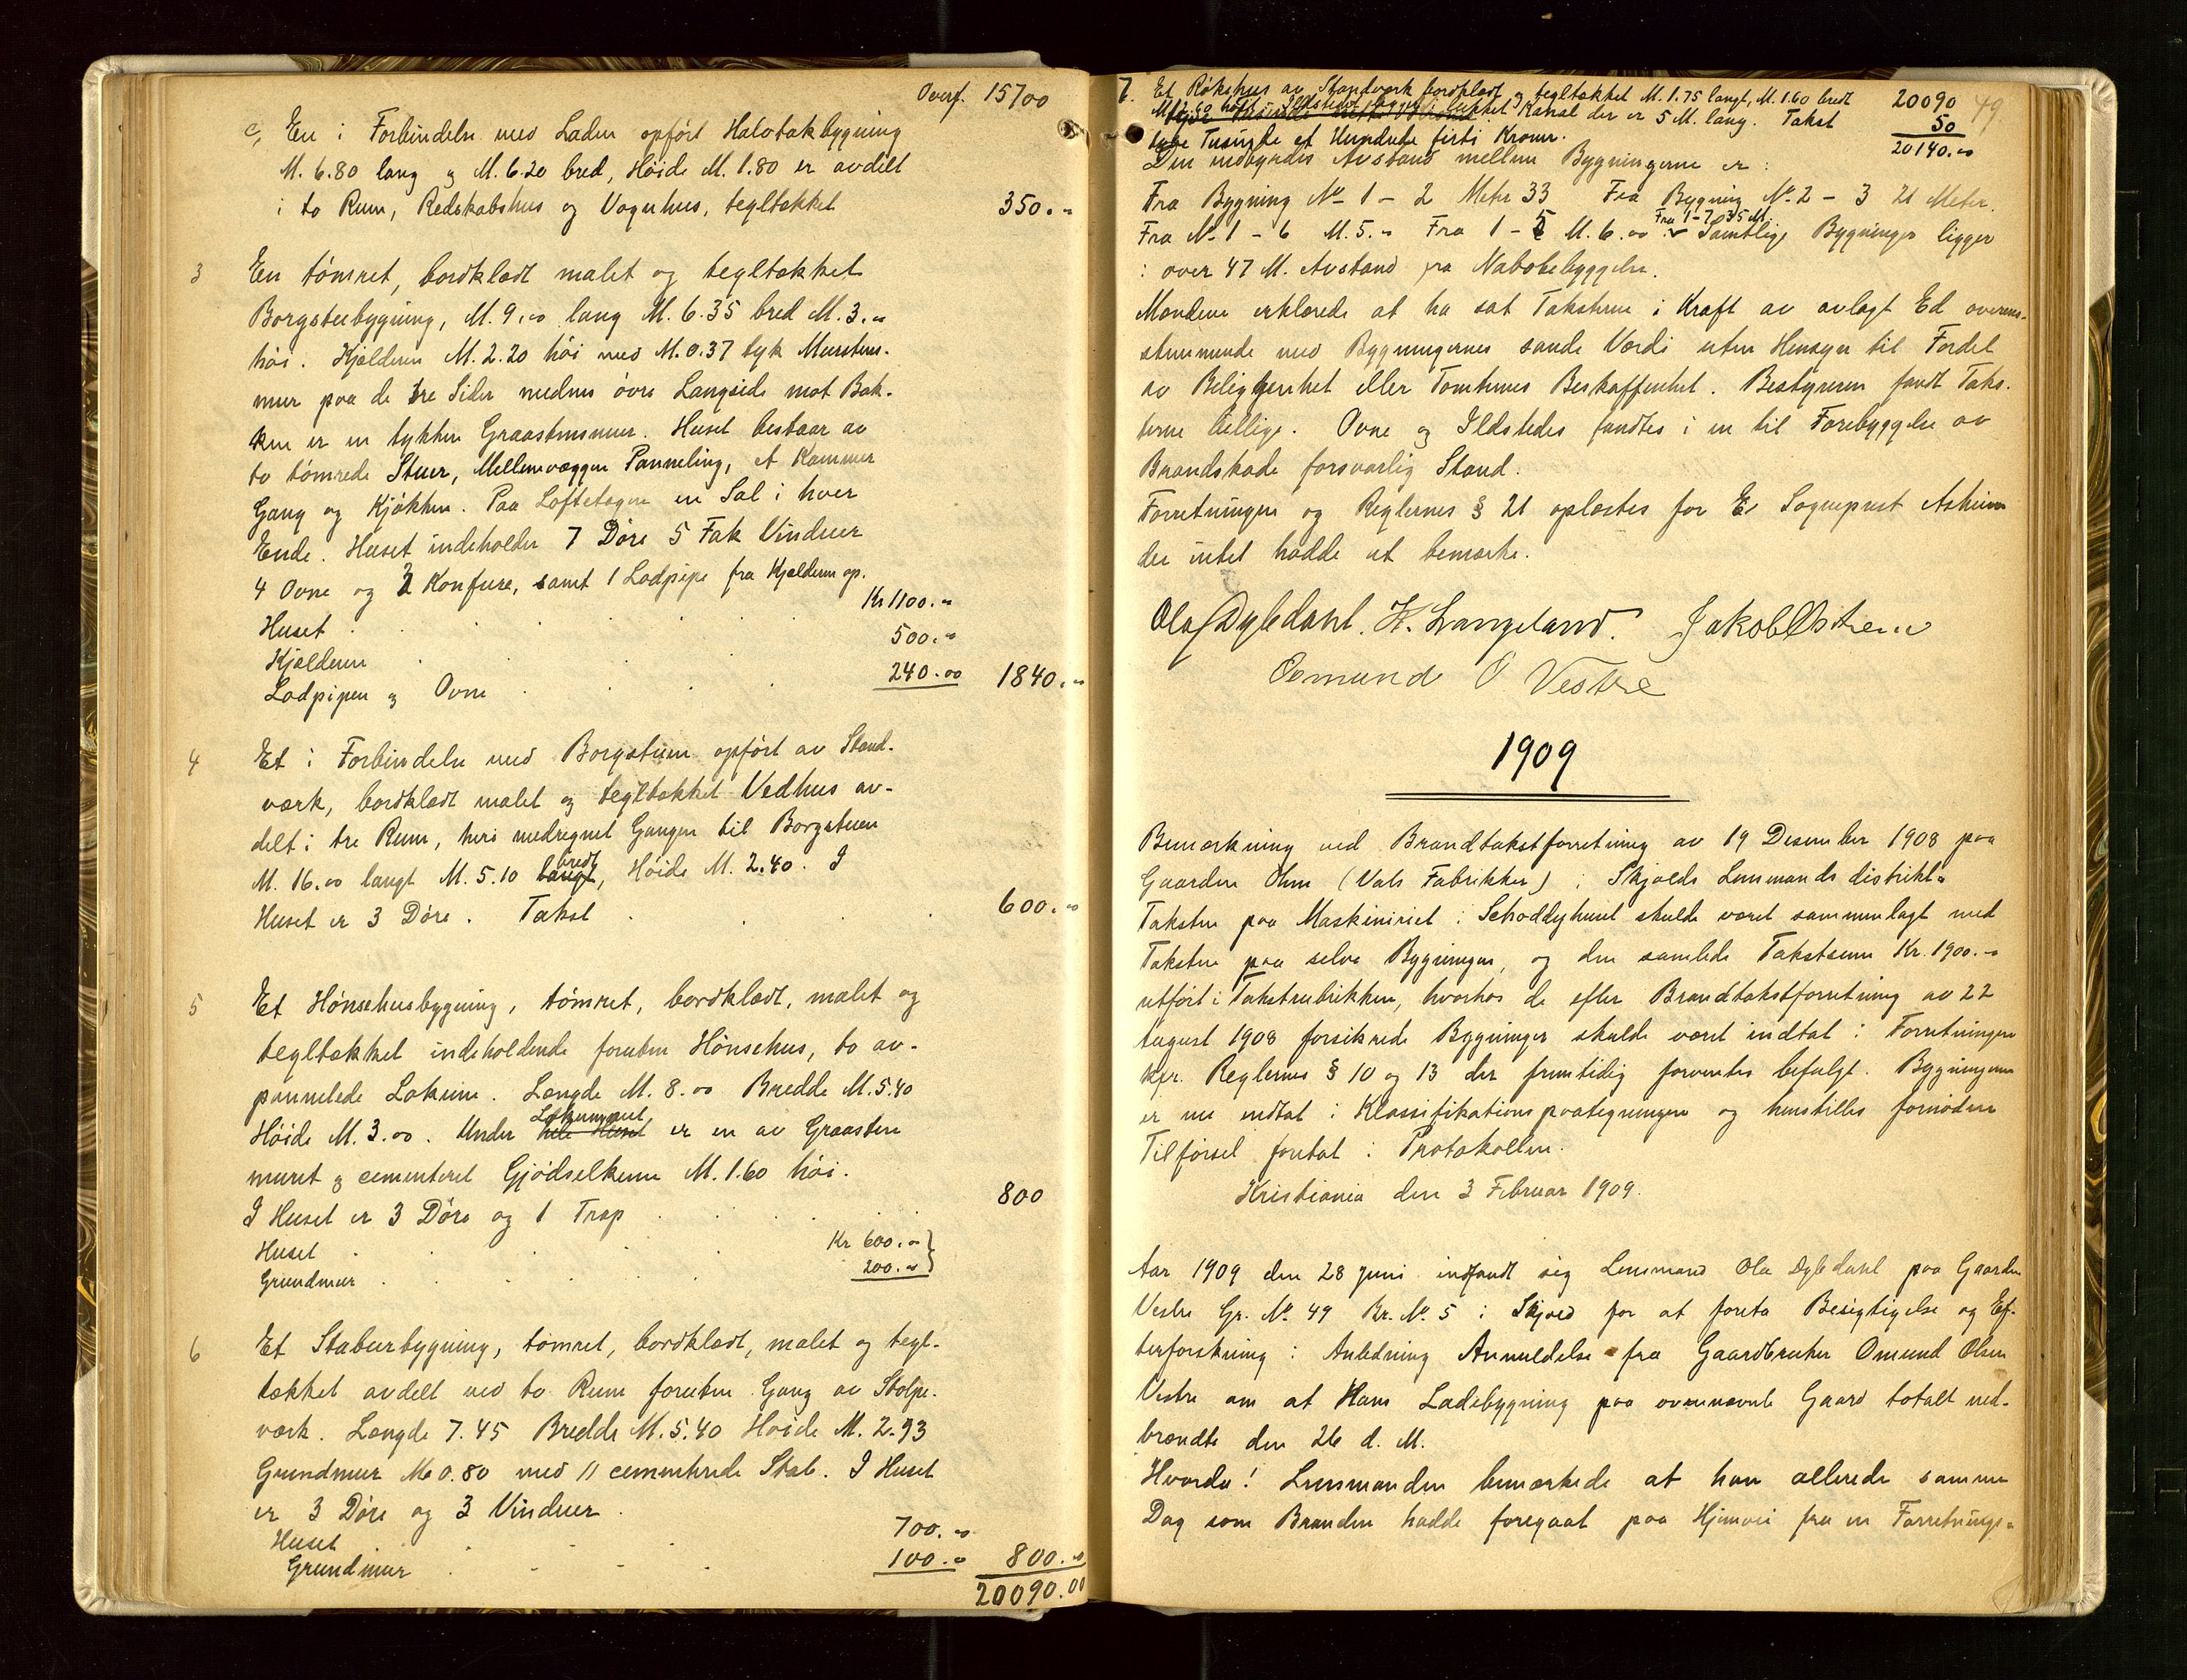 Overf. 15700
c, En i Forbindelse med Laden opført Halvtakbygning
M. 6.80 lang og M. 6.20 bred, Høide M. 1.80 er avdelt
i to Rum, Redskabshus og Vognhus, tegltækket 350.00
3 En tømret, bordklædt malet og tegltækket
Borgstubygning, M. 9.00 lang M. 6.35 bred M. 3.00
høi. Kjælderen M. 2.20 høi med M. 0.37 tyk Murstens-
mur paa de tre Sider medens øvre Langside mot Bak-
ken er en tykken Graastensmur. Huset bestaar av
to tømrede Stuer, Mellemvæggen Panneling, et Kammer
Gang og Kjøkken. Paa Loftetagen en Sal i hver
Ende. Huset indeholder 7 Døre 5 Fak Vinduer
4 Ovne og 2 Komfure, samt 1 Lodpipe fra Kjælderen op.
Huset Kr 1100.00
Kjælderen 500.00
Lodpipen og Ovne 240.00 1840.00
4 Et i Forbindelse med Borgstuen opført av Stand-
værk, bordklædt malet og tegltækket Vedhus av-
delt i tre Rum, heri medregnet Gangen til Borgstuen
M. 16.00 langt M. 5.10 langt bredt, Høide M. 2.40. I
Huset er 3 Døre. Takst 600.00
5 Et Hønsehusbygning, tømret, bordklædt, malet og
tegltækket indeholdende foruten Hønsehus, to av-
pannelede Lokume. Længde M. 8.00 Bredde M. 5.40
Høide M. 3.00. Under hele Huset Lokummet er en av Graasten
muret og cementeret Gjødselkum M. 1.60 høi.
I Huset er 3 Døre og 1 Trap 800
Huset Kr 600.00
Grundmur 200.00
6 Et Stabursbygning, tømret, bordklædt, malet og tegl-
tækket avdelt ved to Rum foruten Gang av Stolpe-
værk. Længde 7.45 Bredde M. 5.40 Høide M. 2.93
Grundmur M. 0.80 med 11 cementerede Stab. I Huset
er 3 Døre og 3 Vinduer.
Huset 700.00
Grundmur 100.00 800.00
20090.00
7. Et Røkehus av Standværk bordklædt og tegltækket M. 1.75 langt, M. 1.60 bredt 20090 49
M. 2.60 høit. Ildstedet ligger i lukket Kanal der er 5 M. lang. Takst 50
tyve Tusinde et Hundrede firti Kroner. 20140.00
Den indbyrdes Avstand mellem Bygningerne er:
Fra Bygning No 1 - 2 Meter 33 Fra Bygning No 2 - 3 21 Meter.
Fra No 1 - 6 M. 5.00 Fra 1 - 5 M. 6.00 Fra 1 - 7 35 M. Samtlige Bygninger ligger
i over 47 M. Avstand fra Nabobebyggelse.
Mændene erklærede at ha sat Taksterne i Kraft av avlagt Ed overens-
stemmende med Bygningernes sande Værdi uten Hensyn til Fordel
av Beliggenhet eller Tomternes Beskaffenhet. Bestyreren fandt Taks-
terne billige. Ovne og Ildstedes fandtes i en til Forebyggelse av
Brandskade forsvarlig Stand.
Forretningen og Reglernes § 21 oplæstes for Er Sogneprest Asheim
der intet hadde at bemærke.
Olaf Dybdahl. H. Langeland. Jakob Østrem
Osmund O Vestre
1909
Bemærkning ved Brandtakstforretning av 19 Desember 1908 paa
Gaarden Ohm (Vats Fabrikker) i Skjolds Lensmandsdistrikt.
Taksten paa Maskineriet i Schoddyhuset skulde været sammenlagt med
Taksten paa selve Bygningen, og den samlede Takstsum Kr. 1900.00
utført i Takstrubrikken, hvorhos de efter Brandtakstforretning av 22
August 1908 forsikrede Bygninger skulde været indtat i Forretningen
kfr. Reglernes § 10 og 13 der fremtidig forventes befulgt. Bygningerne
er nu indtat i Klassifikationspaategningen og henstilles fornøden
Tilførsel foretat i Protokollen.
Kristiania den 3 Februar 1909.
Aar 1909 den 28 Juni indfandt sig Lensmand Ola Dybdahl paa Gaarden
Vestre Gr. No. 49 Br. No. 5 i Skjold for at foreta Besigtigelse og Ef-
terforskning i Anledning Anmeldelse fra Gaardbruker Omund Olsen
Vestre om at Hans Ladebygning paa ovennævnte Gaard totalt ned-
brændte den 26 d. M.
Hvorda! Lensmanden bemærkede at han allerede samme
Dag som Branden hadde foregaat paa Hjemvei fra en Forretnings-